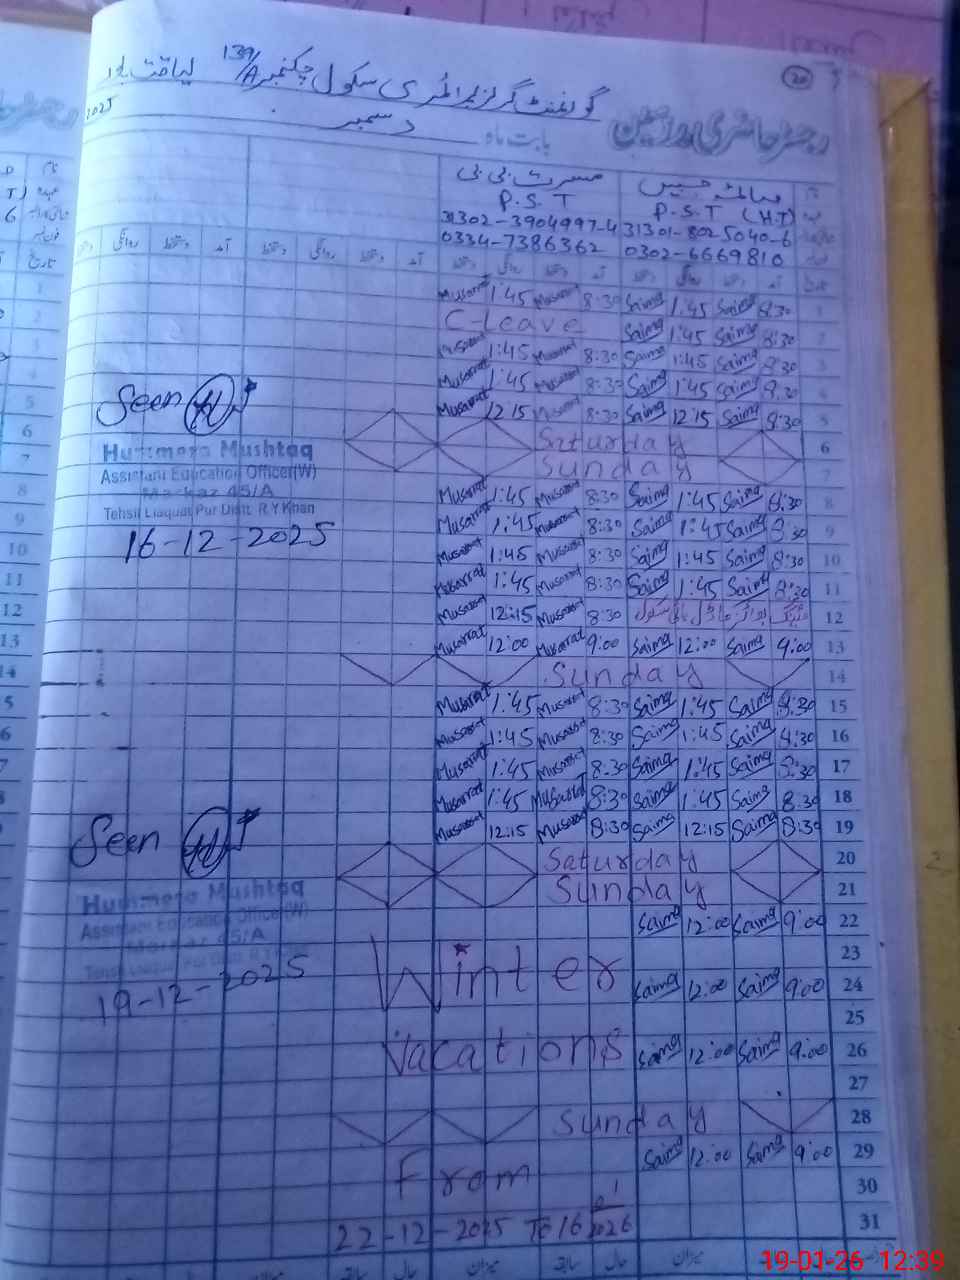 20
گورنمنٹ گرلز پرائمری سکول چکنمبر 139/A لیاقت پور
رجسٹر حاضری مدرسین
بابت ماہ دسمبر 2025
صائمہ جبیں
P.S.T (H.T)
31301-8025040-6
0302-6669810
مسرت بی بی
P.S.T
31302-3904997-4
0334-7386362
تاریخ آمد دستخط روانگی دستخط آمد دستخط روانگی دستخط آمد دستخط روانگی دستخط آمد دستخط روانگی دستخط
Musarrat 1:45 Musarrat 8:30 Saima 1:45 Saima 8:30 1
C-Leave Saima 1:45 Saima 8:30 2
Musarrat 1:45 Musarrat 8:30 Saima 1:45 Saima 8:30 3
Musarrat 1:45 Musarrat 8:30 Saima 1:45 Saima 8:30 4
Musarrat 12:15 Musarrat 8:30 Saima 12:15 Saima 8:30 5
Saturday 6
Sunday 7
Musarrat 1:45 Musarrat 8:30 Saima 1:45 Saima 8:30 8
Musarrat 1:45 Musarrat 8:30 Saima 1:45 Saima 8:30 9
Musarrat 1:45 Musarrat 8:30 Saima 1:45 Saima 8:30 10
Musarrat 1:45 Musarrat 8:30 Saima 1:45 Saima 8:30 11
Musarrat 12:15 Musarrat 8:30 12
Musarrat 12:00 Musarrat 9:00 Saima 12:00 Saima 9:00 13
Sunday 14
Musarrat 1:45 Musarrat 8:30 Saima 1:45 Saima 8:30 15
Musarrat 1:45 Musarrat 8:30 Saima 1:45 Saima 8:30 16
Musarrat 1:45 Musarrat 8:30 Saima 1:45 Saima 8:30 17
Musarrat 1:45 Musarrat 8:30 Saima 1:45 Saima 8:30 18
Musarrat 12:15 Musarrat 8:30 Saima 12:15 Saima 8:30 19
Saturday 20
Sunday 21
Saima 12:00 Saima 9:00 22
Winter 23
Saima 12:00 Saima 9:00 24
25
Vacations Saima 12:00 Saima 9:00 26
27
Sunday 28
Saima 12:00 Saima 9:00 29
From 30
22-12-2025 To 16 1 2026 31
Seen
Hummera Mushtaq
Assistant Education Officer(W)
Markaz 45/A
Tehsil Liaquat Pur Distt. R.Y.Khan
16-12-2025
Seen
Hummera Mushtaq
Assistant Education Officer(W)
Markaz 45/A
Tehsil Liaquat Pur Distt. R.Y.Khan
19-12-2025
19-01-26 12:39